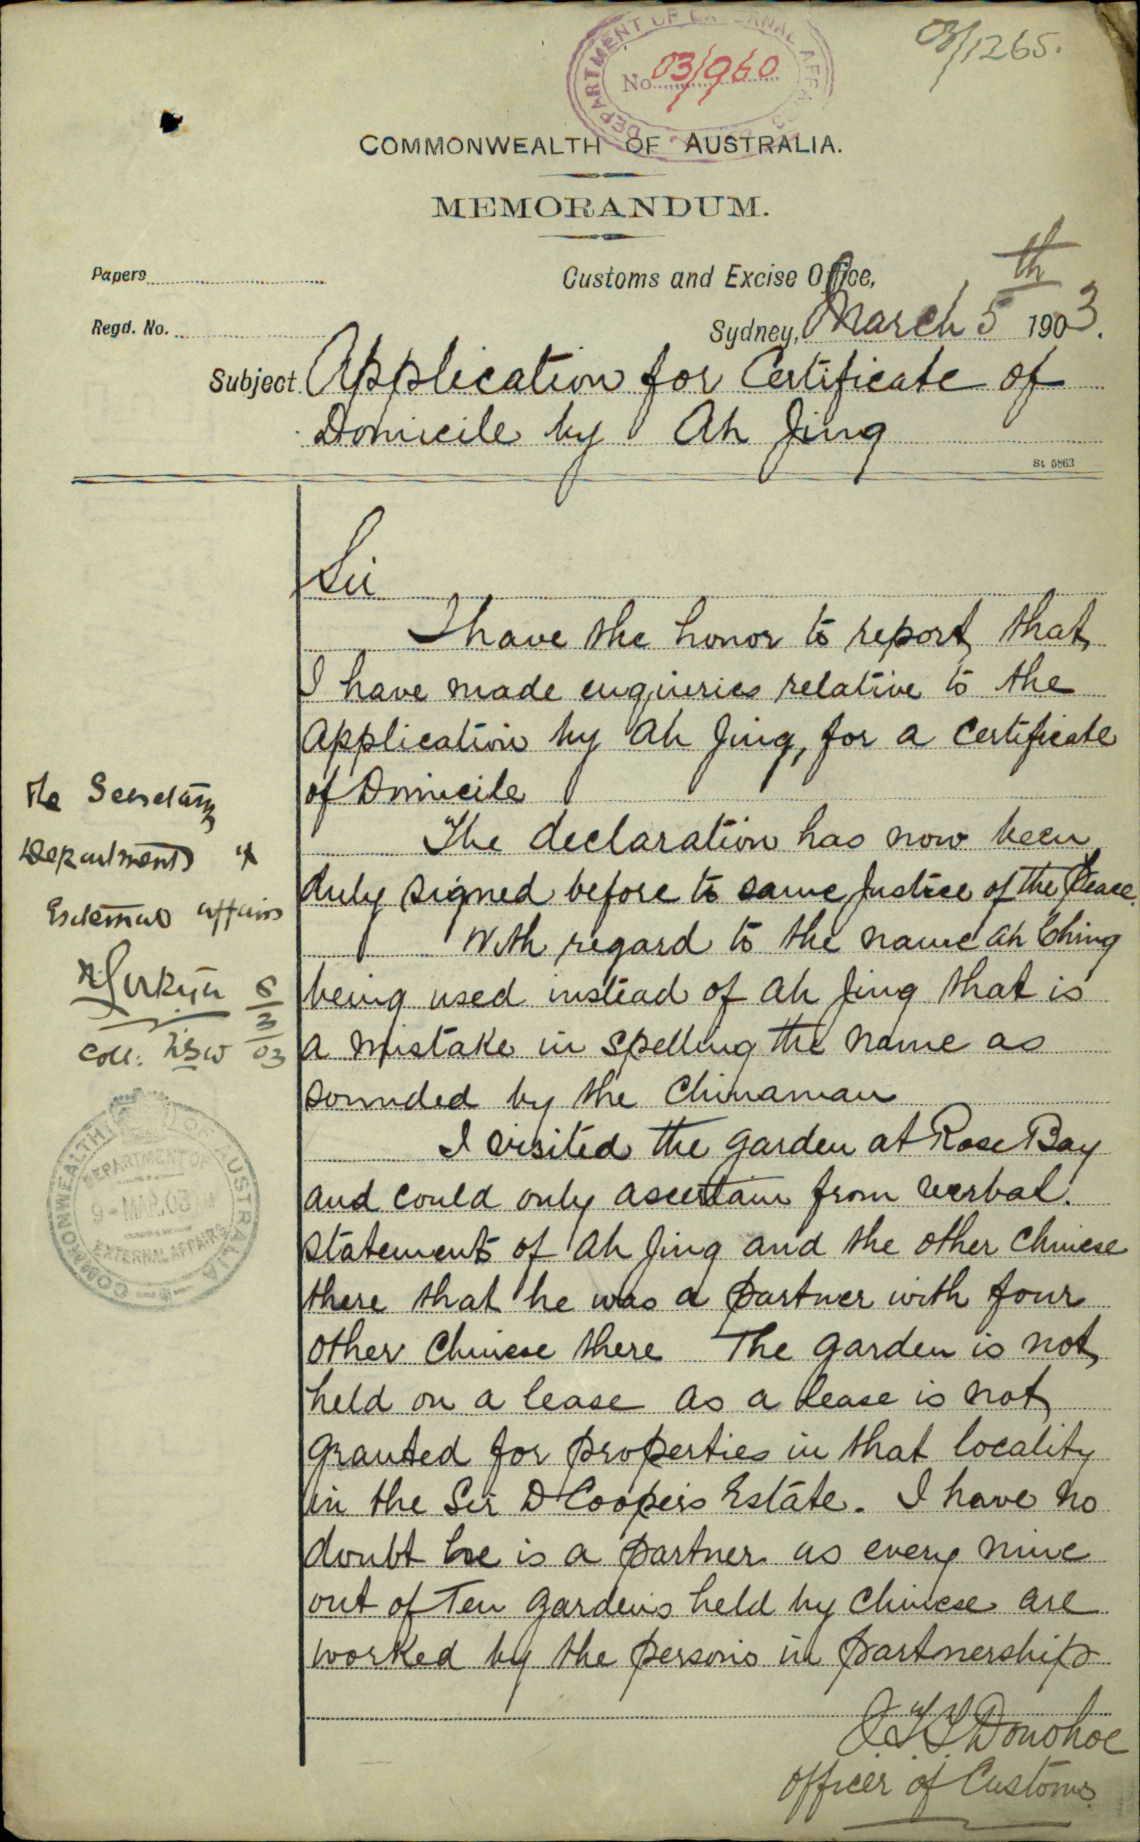 03/1265.
DEPARTMENT OF EXTERNAL AFFAIRS
No. 03/960
COMMONWEALTH OF AUSTRALIA.
MEMORANDUM.
Papers
Customs and Excise Office,
Regd. No.
Sydney, March 5th 1903.
Subject Application for Certificate of
Domicile by Ah Jing
St. 5863
Sir
I have the honor to report that
I have made enquiries relative to the
Application by Ah Jing, for a Certificate
of Domicile
The declaration has now been
duly signed before to same Justice of the Peace.
With regard to the name Ah Ching
being used instead of Ah Jing that is
a mistake in spelling the name as
sounded by the Chinaman
I visited the garden at Rose Bay
and could only ascertain from verbal
statements of Ah Jing and the other Chinese
there that he was a partner with four
other Chinese there The garden is not
held on a lease as a lease is not
granted for properties in that locality
in the Sir D Coopers Estate. I have no
doubt he is a partner as every nine
out of Ten gardens held by Chinese are
worked by the persons in partnership
Donohoe
Officer of Customs
The Secretary
Department of
External Affairs
Coll: NSW
6/3/03
COMMONWEALTH OF AUSTRALIA
DEPARTMENT OF
9-MAR.03
EXTERNAL AFFAIRS